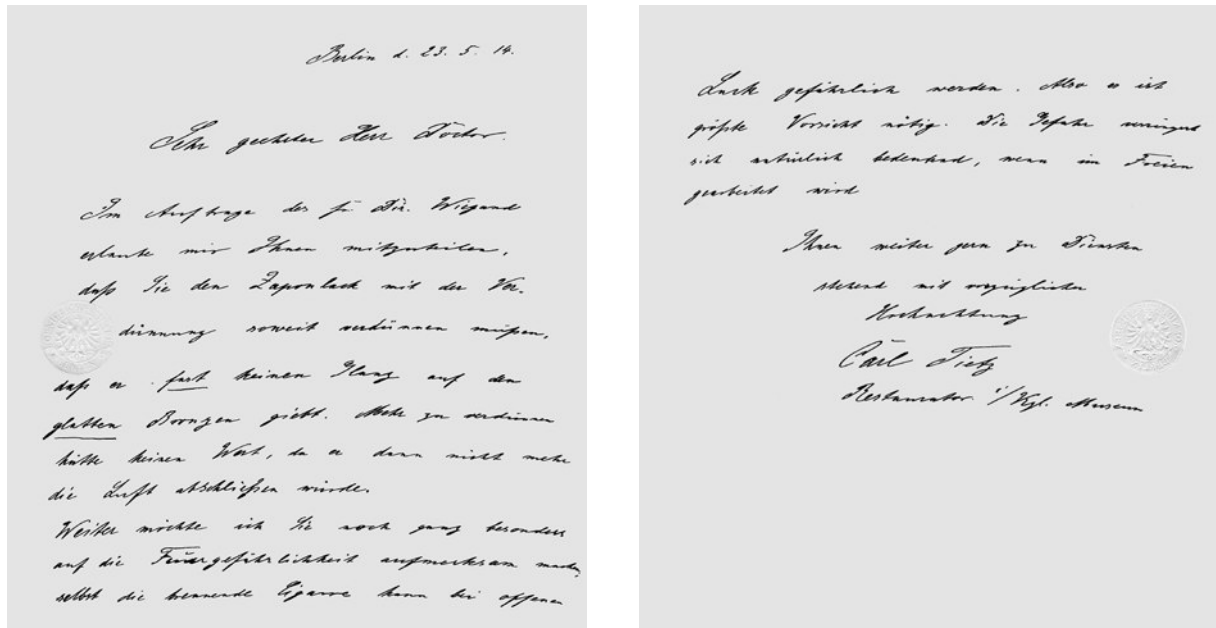 Berlin d. 23. 5. 14.
Sehr geehrter Herr Doctor.
Im Auftrage des H. Dir. Wiegand
erlaube mir Ihnen mitzuteilen,
daß Sie den Zaponlack mit der Ver-
dünnung soweit verdünnen müßen,
daß er fast keinen Glanz auf den
glatten Bronzen giebt. Mehr zu verdünnen
hätte keinen Wert, da er dann nicht mehr
die Luft abschließen würde.
Weiter möchte ich Sie noch ganz besonders
auf die Feuergefährlichkeit aufmerksam machen,
selbst die brennende Cigarre kann bei offenem
Lack gefährlich werden. Also es ist
größte Vorsicht nötig. Die Gefahr verringert
sich natürlich bedeutend, wenn im Freien
gearbeitet wird
Ihnen weiter gern zu Diensten
stehend mit vorzüglicher
Hochachtung
Carl Tietz
Restaurator i/Kgl. Museum